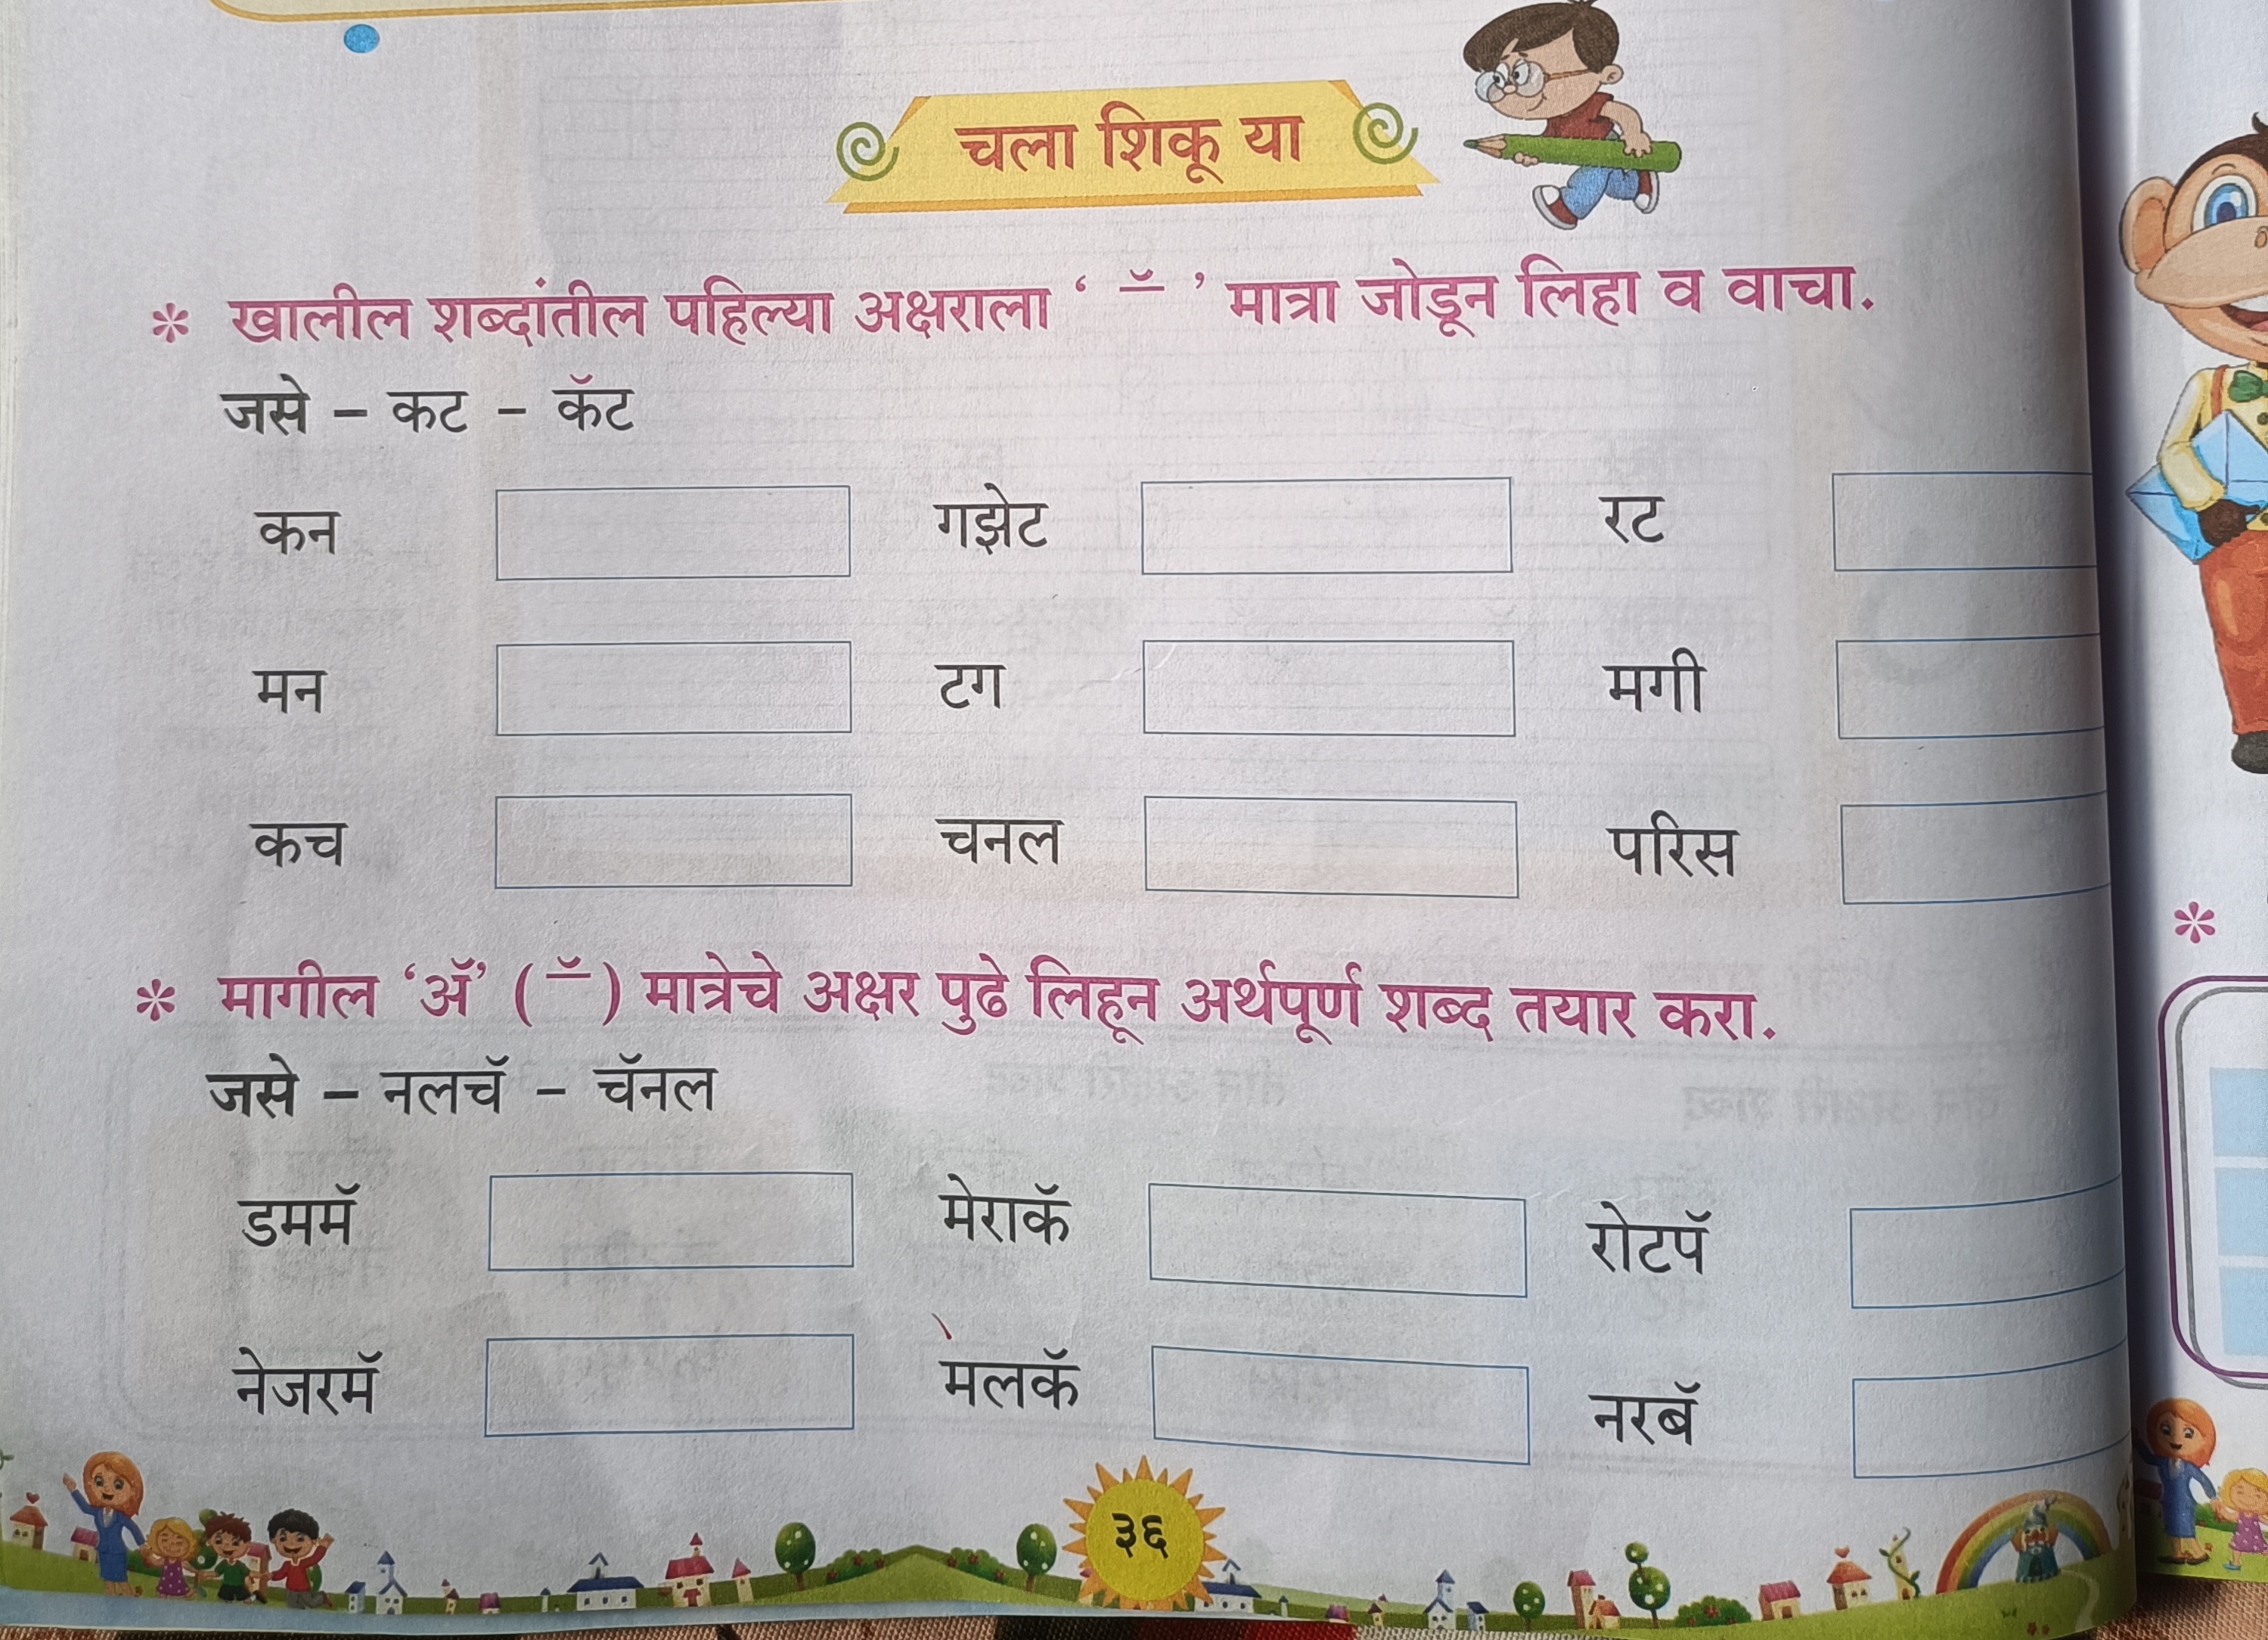 चला शिकू या
* खालील शब्दांतील पहिल्या अक्षराला ‘ ॅ ’ मात्रा जोडून लिहा व वाचा.
जसे – कट – कॅट
कन गझेट रट
मन टग मगी
कच चनल परिस
* मागील ‘ॲ’ ( ॅ ) मात्रेचे अक्षर पुढे लिहून अर्थपूर्ण शब्द तयार करा.
जसे – नलचॅ – चॅनल
डममॅ मेराकॅ रोटपॅ
नेजरमॅ मलकॅ नरबॅ
३६
*